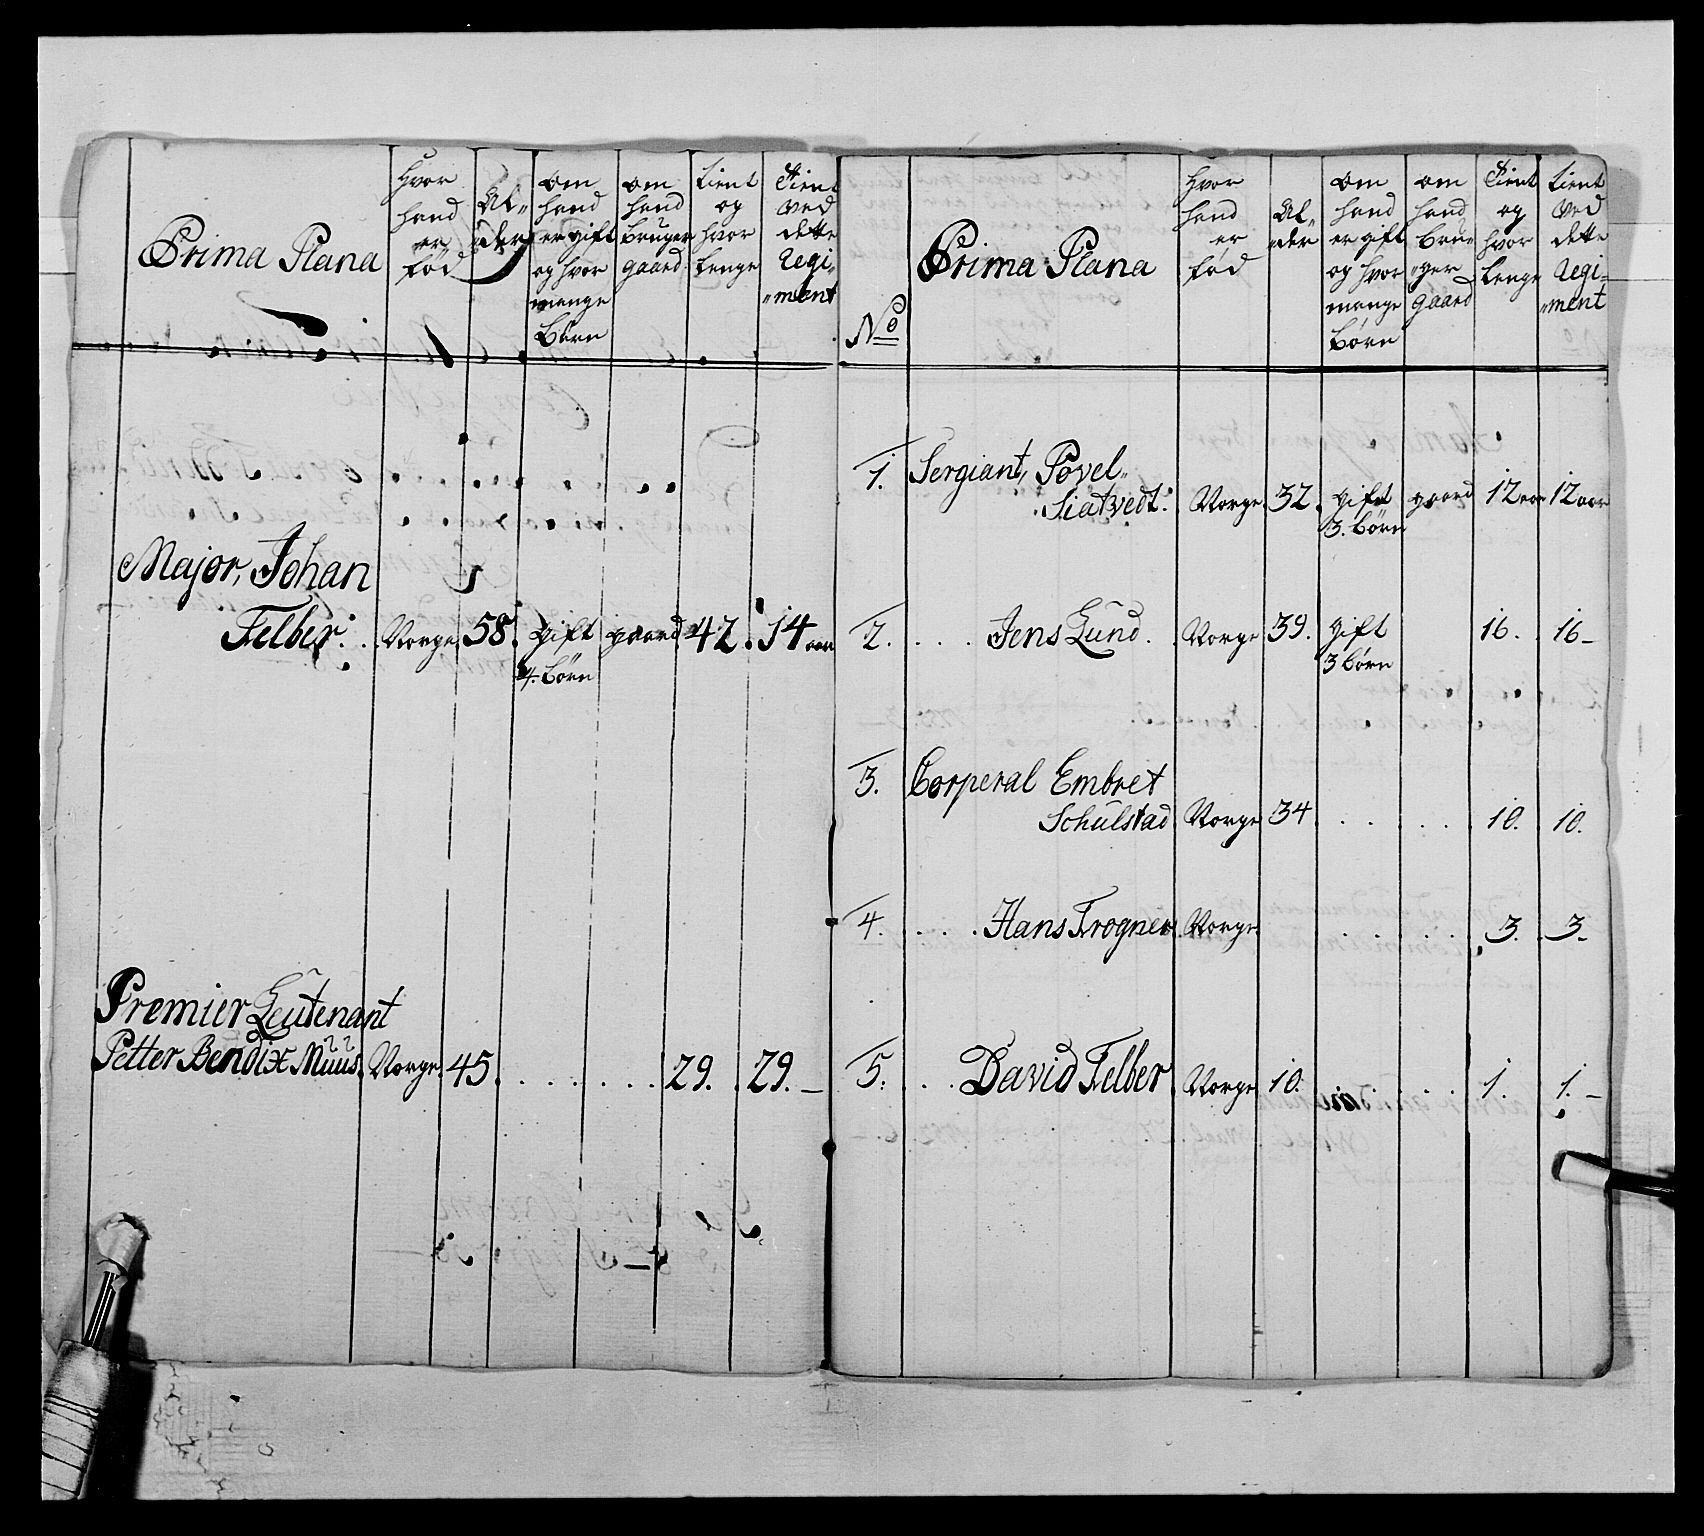 Prima Plana
Hvor
hand
er
fød
Al-
der
om
hand
er gift
og hvor
mange
Børn
om
hand
bruger
gaard
tient
og
hvor
lenge
Tient
ved
dette
Regi-
ment
Major, Johan
Felber. Norge. 58. gift gaard 42. 14 aar
4. børn
Premier Leutenant
Petter Bendix Müüs. Norge. 45. . . . . . . . 29. . 29. -
No
Prima Plana
Hvor
hand
er
fød
Al-
der
om
hand
er gift
og hvor
mange
børn
om
hand
bru-
ger
gaard
Tient
og
hvor
lenge
tient
ved
dette
Regi-
ment
1. Sergiant, Povel
Siatvedt. Norge. 32. gift gaard 12 aar 12 aar
3. børn
2. . . . Jens Lund. Norge 39. gift 16. 16-
3 børn
3. Corperal Embret
Schulstad Norge 34 . . . . . . 10. 10.
4. . . . . Hans Trogner Norge. . . . . . 3. 3-
5. . . . David Felber Norge 10. . . . . . 1. 1. -